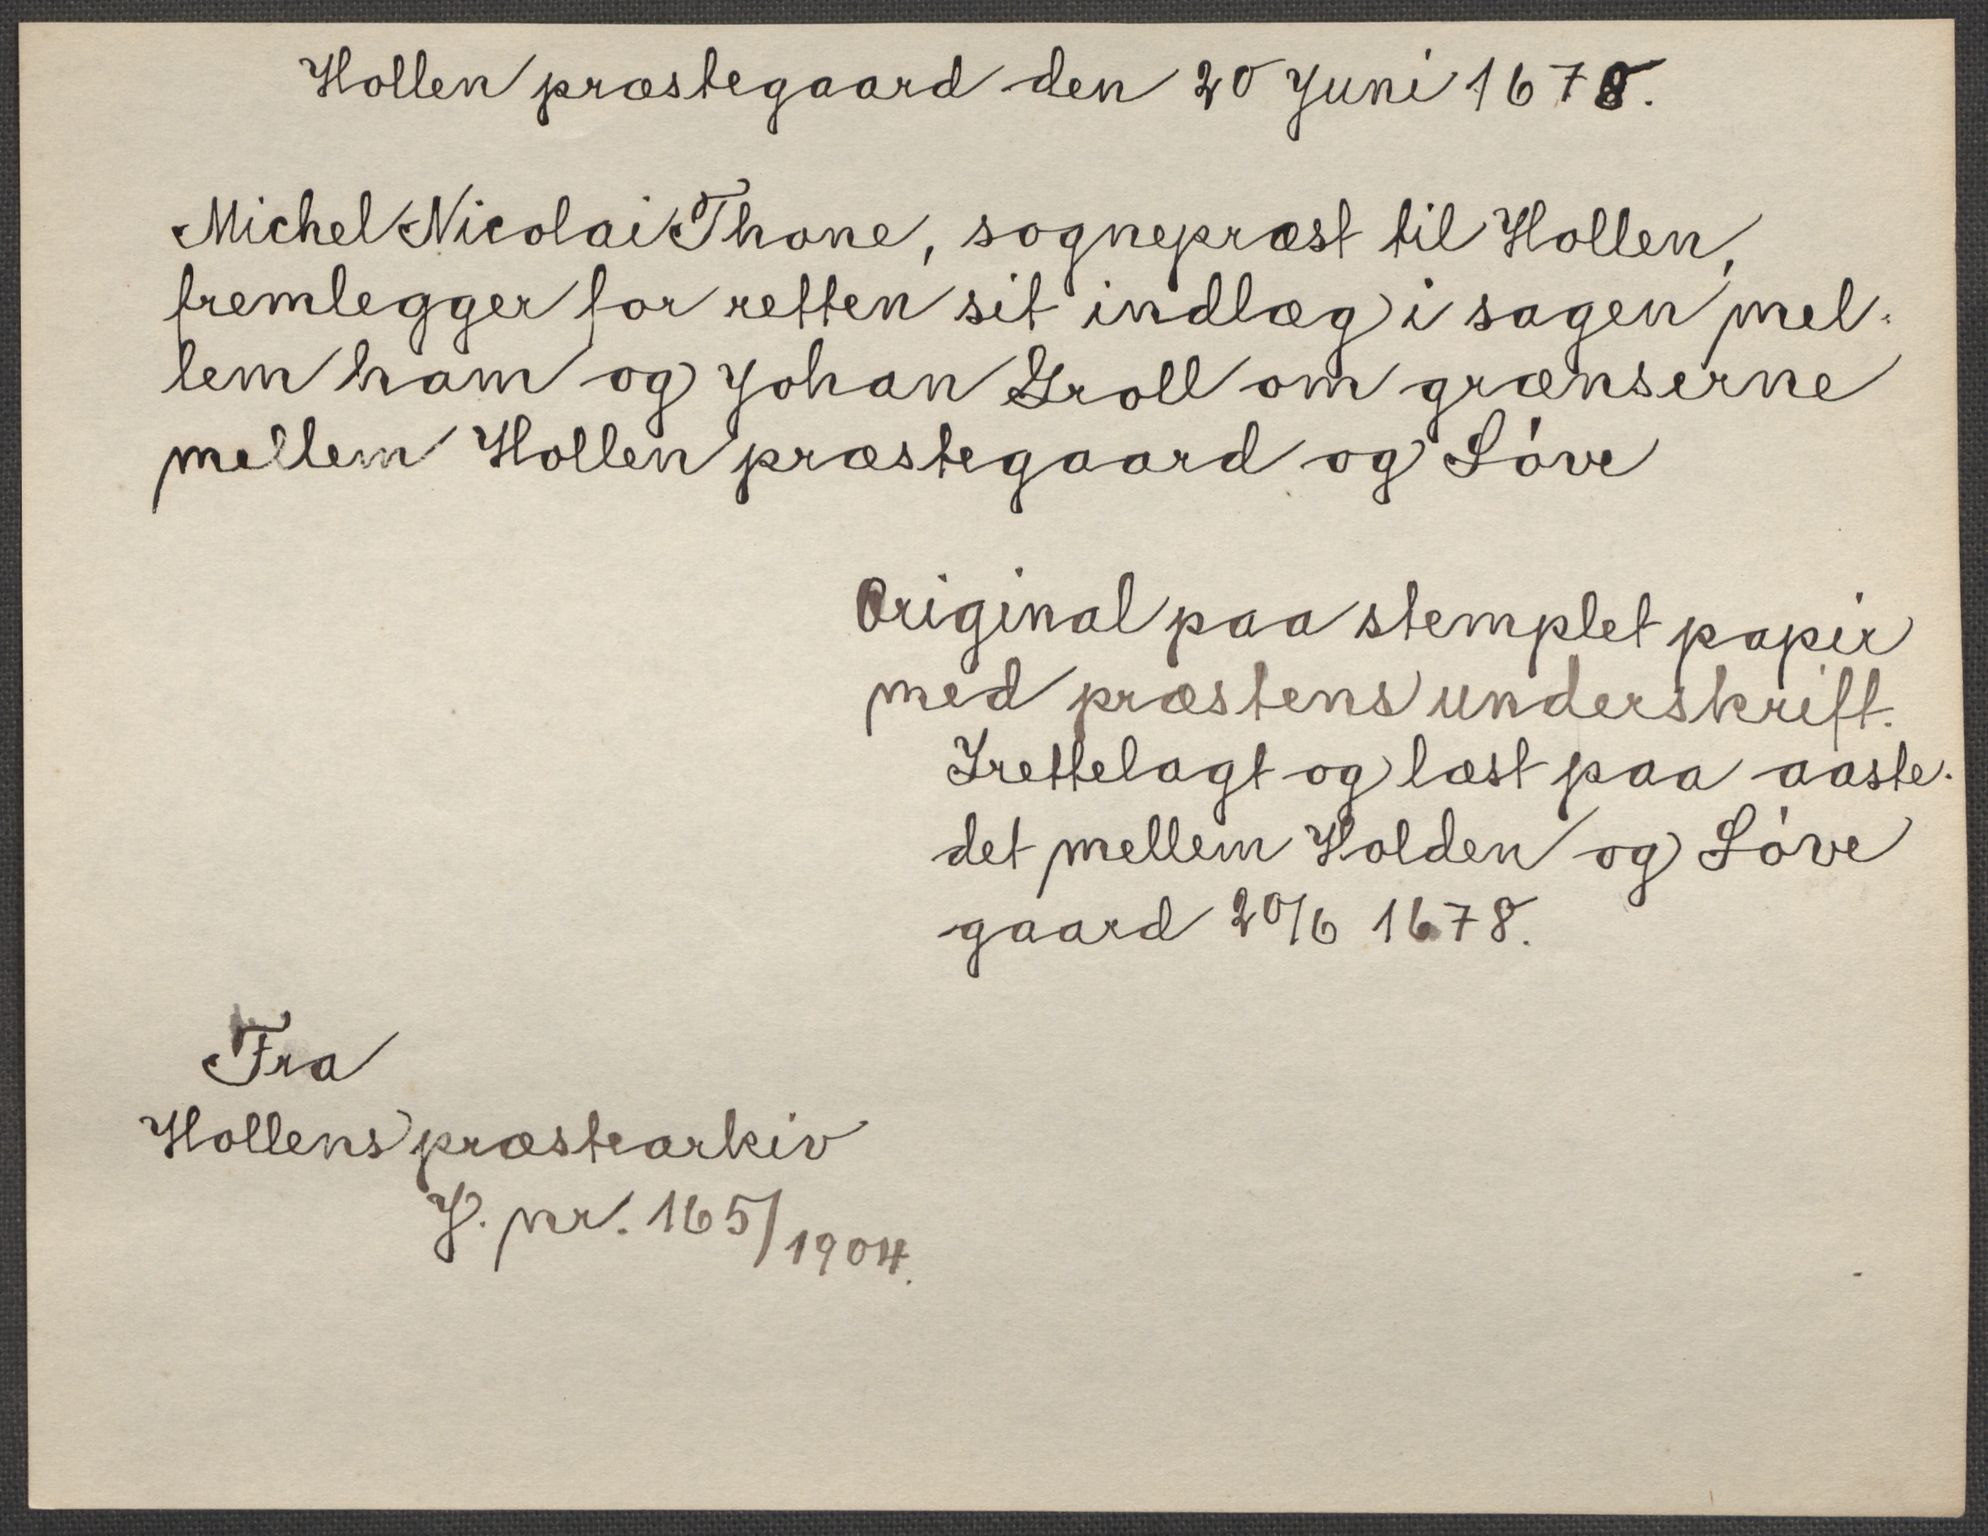 Hollen præstegaard den 20 Juni 1678.
Michel Nicolai Thone, sognepræst til Hollen,
fremlegger for retten sit indlæg i sagen mel-
lem ham og Johan Groll om grænserne
mellem Hollen præstegaard og Söve
Original paa stemplet papir
med præstens underskrift.
Irettelagt og læst paa aaste-
det mellem Holden og Söve
gaard 20/6 1678.
Fra
Hollens præstearkiv
J. nr. 165/1904.